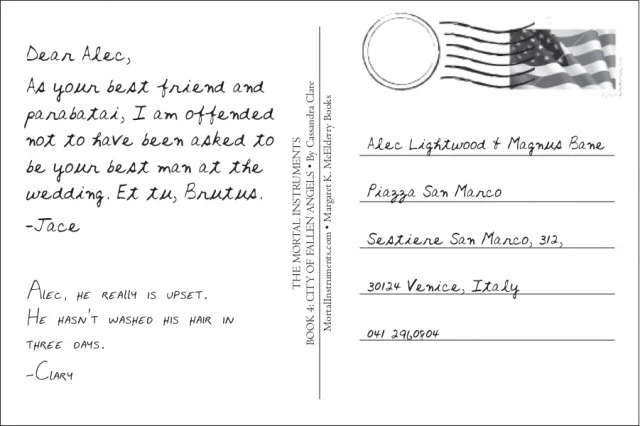 Dear Alec,
As your best friend and
parabatai, I am offended
not to have been asked to
be your best man at the
wedding. Et tu, Brutus.
-Jace
Alec, he really is upset.
He hasn't washed his hair in
three days.
-Clary
THE MORTAL INSTRUMENTS
BOOK 4: CITY OF FALLEN ANGELS • By Cassandra Clare
MortalInstruments.com • Margaret K. McElderry Books
Alec Lightwood & Magnus Bane
Piazza San Marco
Sestiere San Marco, 312,
30124 Venice, Italy
041 2960804